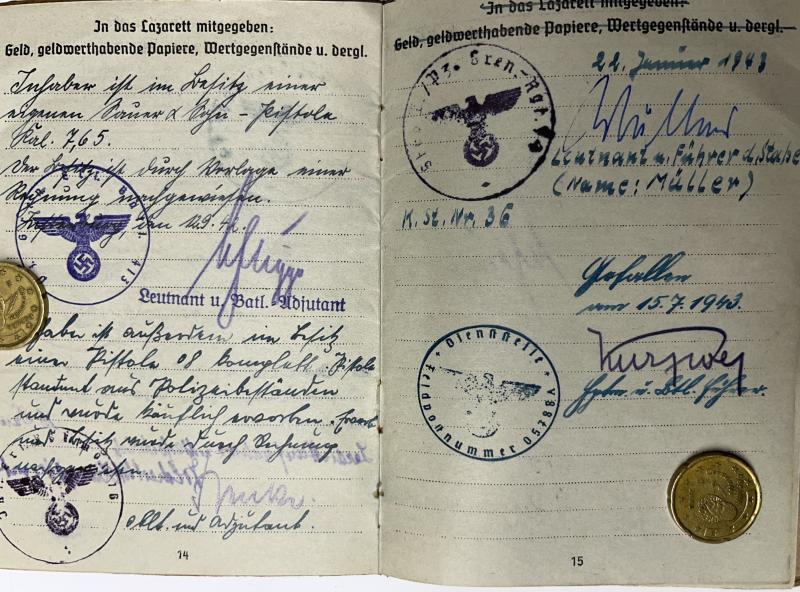 In das Lazarett mitgegeben:
Geld, geldwerthabende Papiere, Wertgegenstände u. dergl.
Inhaber ist im Besitz einer
eigenen Sauer & Sohn - Pistole
Kal. 7,65.
Der Besitz ist durch Vorlage einer
Rechnung nachgewiesen.
den
Leutnant u. Batl.-Adjutant
ist außerdem im Besitz
einer Pistole 08 komplett. Pistole
stammt aus Polizeibeständen
und wurde käuflich erworben. Erwerb
und Besitz wurde durch Rechnung
nachgewiesen
Oblt. und Adjutant.
14
In das Lazarett mitgegeben:
Geld, geldwerthabende Papiere, Wertgegenstände u. dergl.
22. Januar 1943
Pz. Gren.-Rgt.
Leutnant u. Führer d. Stabs
(Name: Müller)
K. St. Nr. 36
Gefallen
am 15.7.1943.
Dienststelle
Feldpostnummer 05788 A
Kurzweg
Hptm. u. Btl. Führer.
15